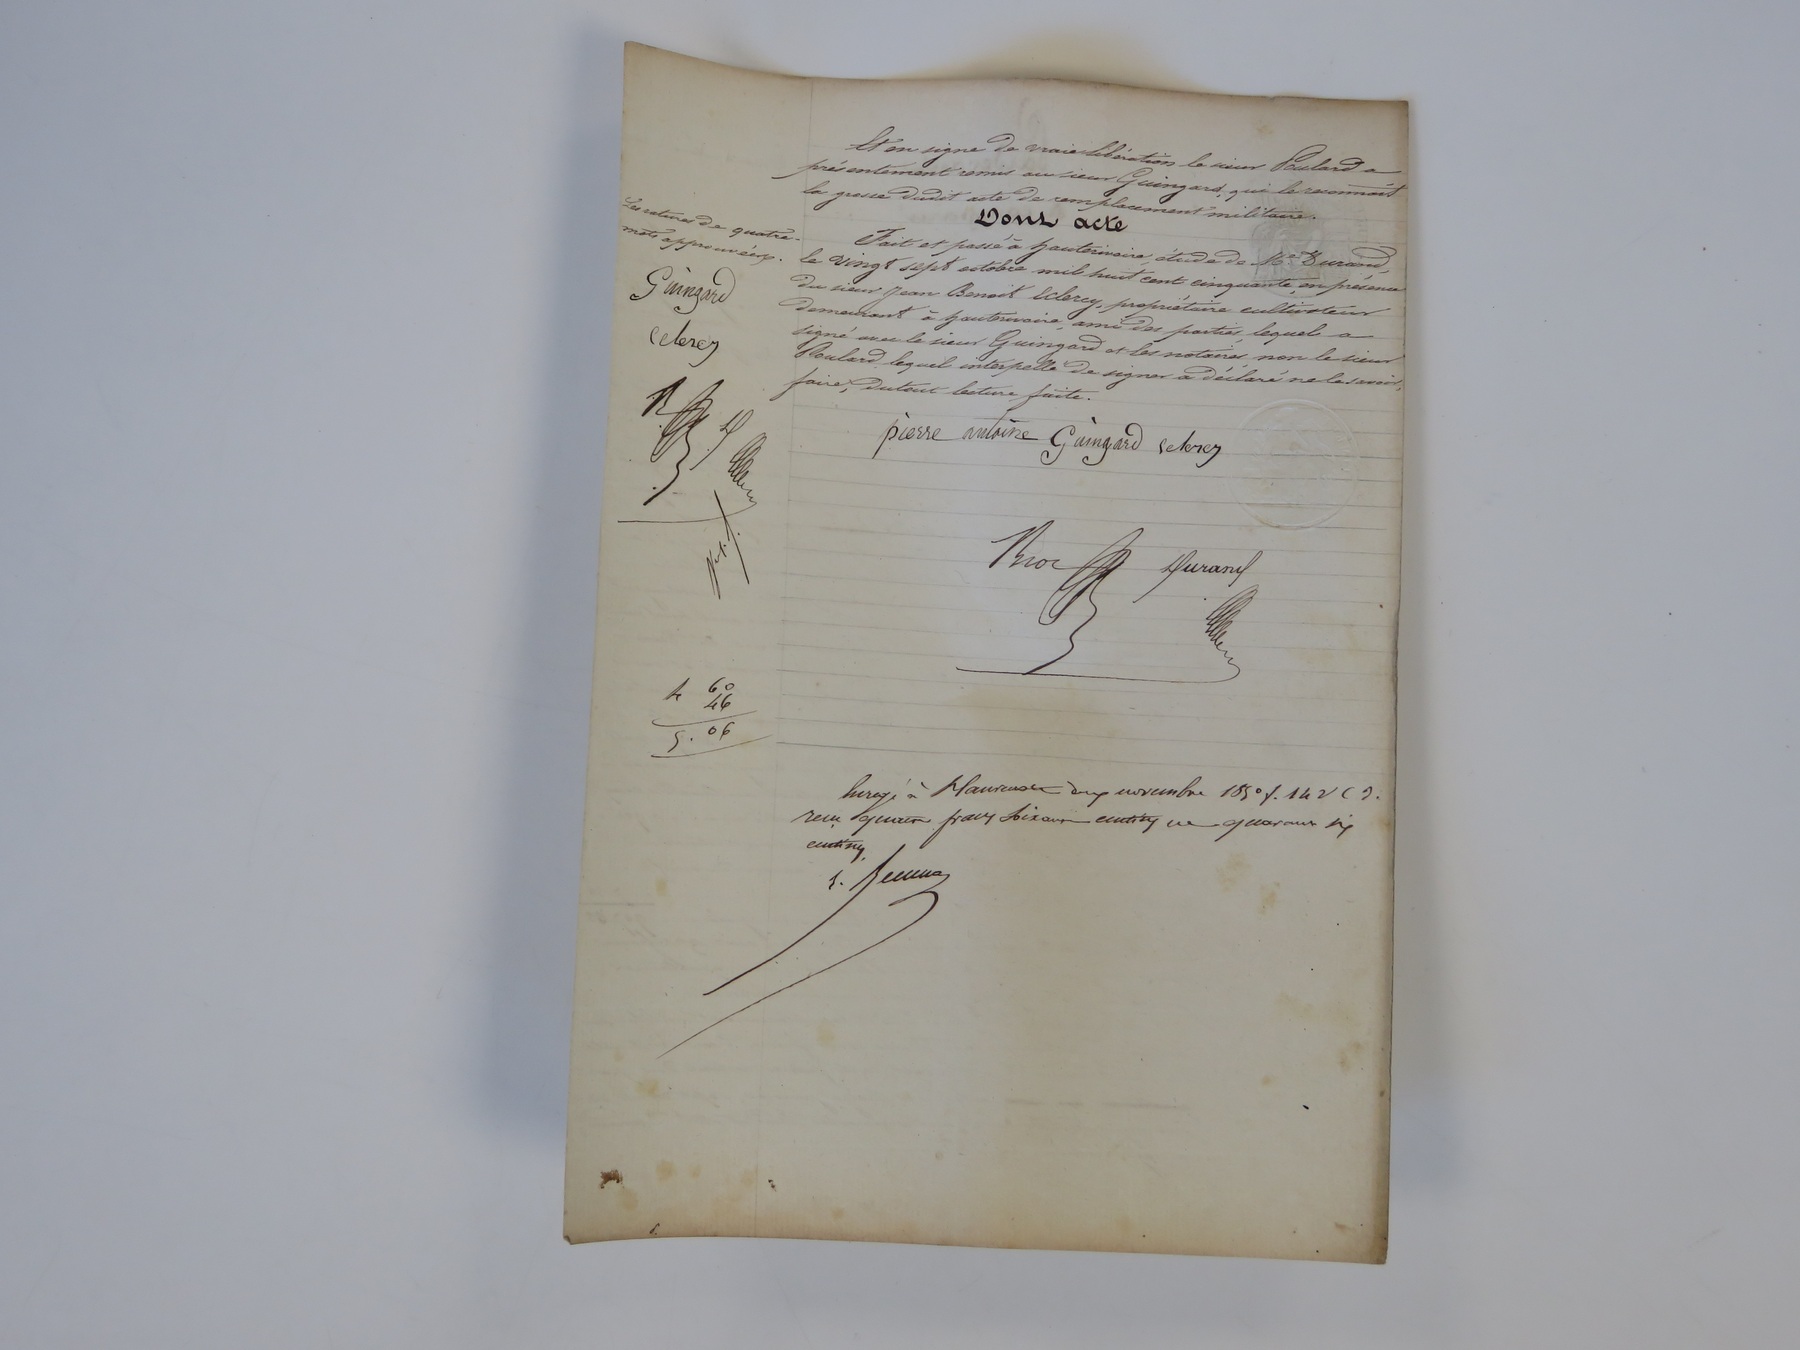 Et en signe de vraie libération le sieur Poulard a
présentement remis au sieur Guingard, qui le reconnait
la grosse dudit acte de remplacement militaire.
Dont acte
Fait et passé à hauterivoire, étude de Me Durand,
le vingt sept octobre mil huit cent cinquante, en présence
du sieur Jean Benoit Eclercy, propriétaire cultivateur
demeurant à hauterivoire, ami des parties, lequel a
signé avec le sieur Guingard et les notaires, non le sieur
Poulard, lequel interpellé de signer a déclaré ne le savoir
faire, dutout lecture faite.
pierre antoine Guingard eclercy
Durand
Les ratures de quatre
mots approuvées.
Guingard
eclercy
R D
4 60
46
5. 06
novembre 1850 f. 142 C
reçu quatre francs soixante centimes et quarante six
centimes